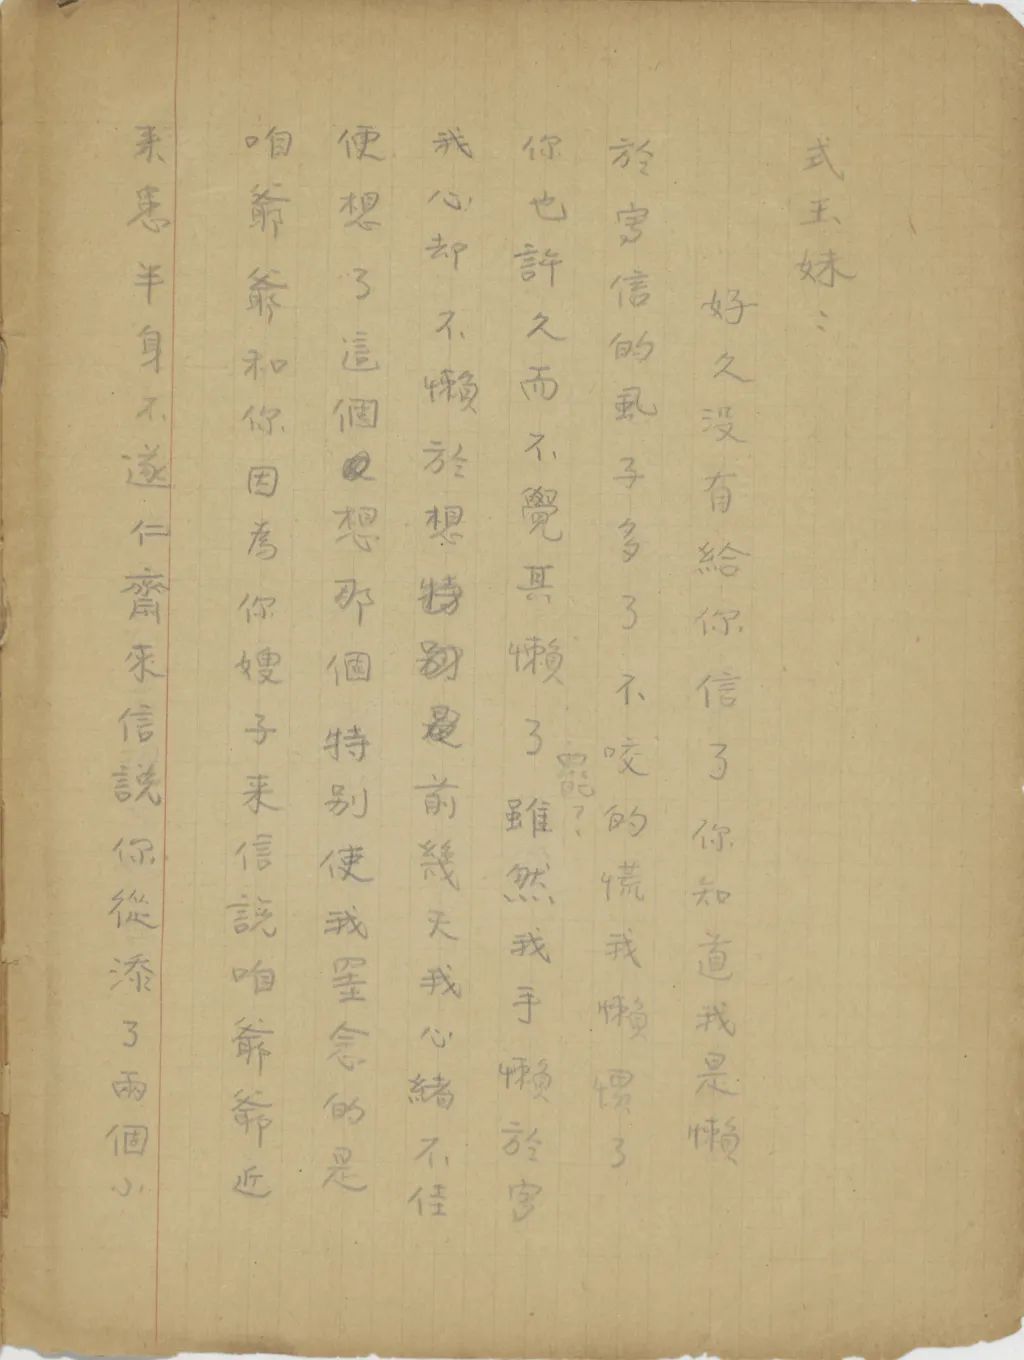 式玉妹：
好久没有給你信了你知道我是懶
於寫信的虱子多了不咬的慌我懶慣了
你也許久而不覺其懶了罷？雖然我手懶於寫
我心却不懶於想特别是前幾天我心緒不佳
便想了這個又想那個特别使我罣念的是
咱爺爺和你因為你嫂子来信説咱爺爺近
来患半身不遂仁齋来信説你從添了兩個小